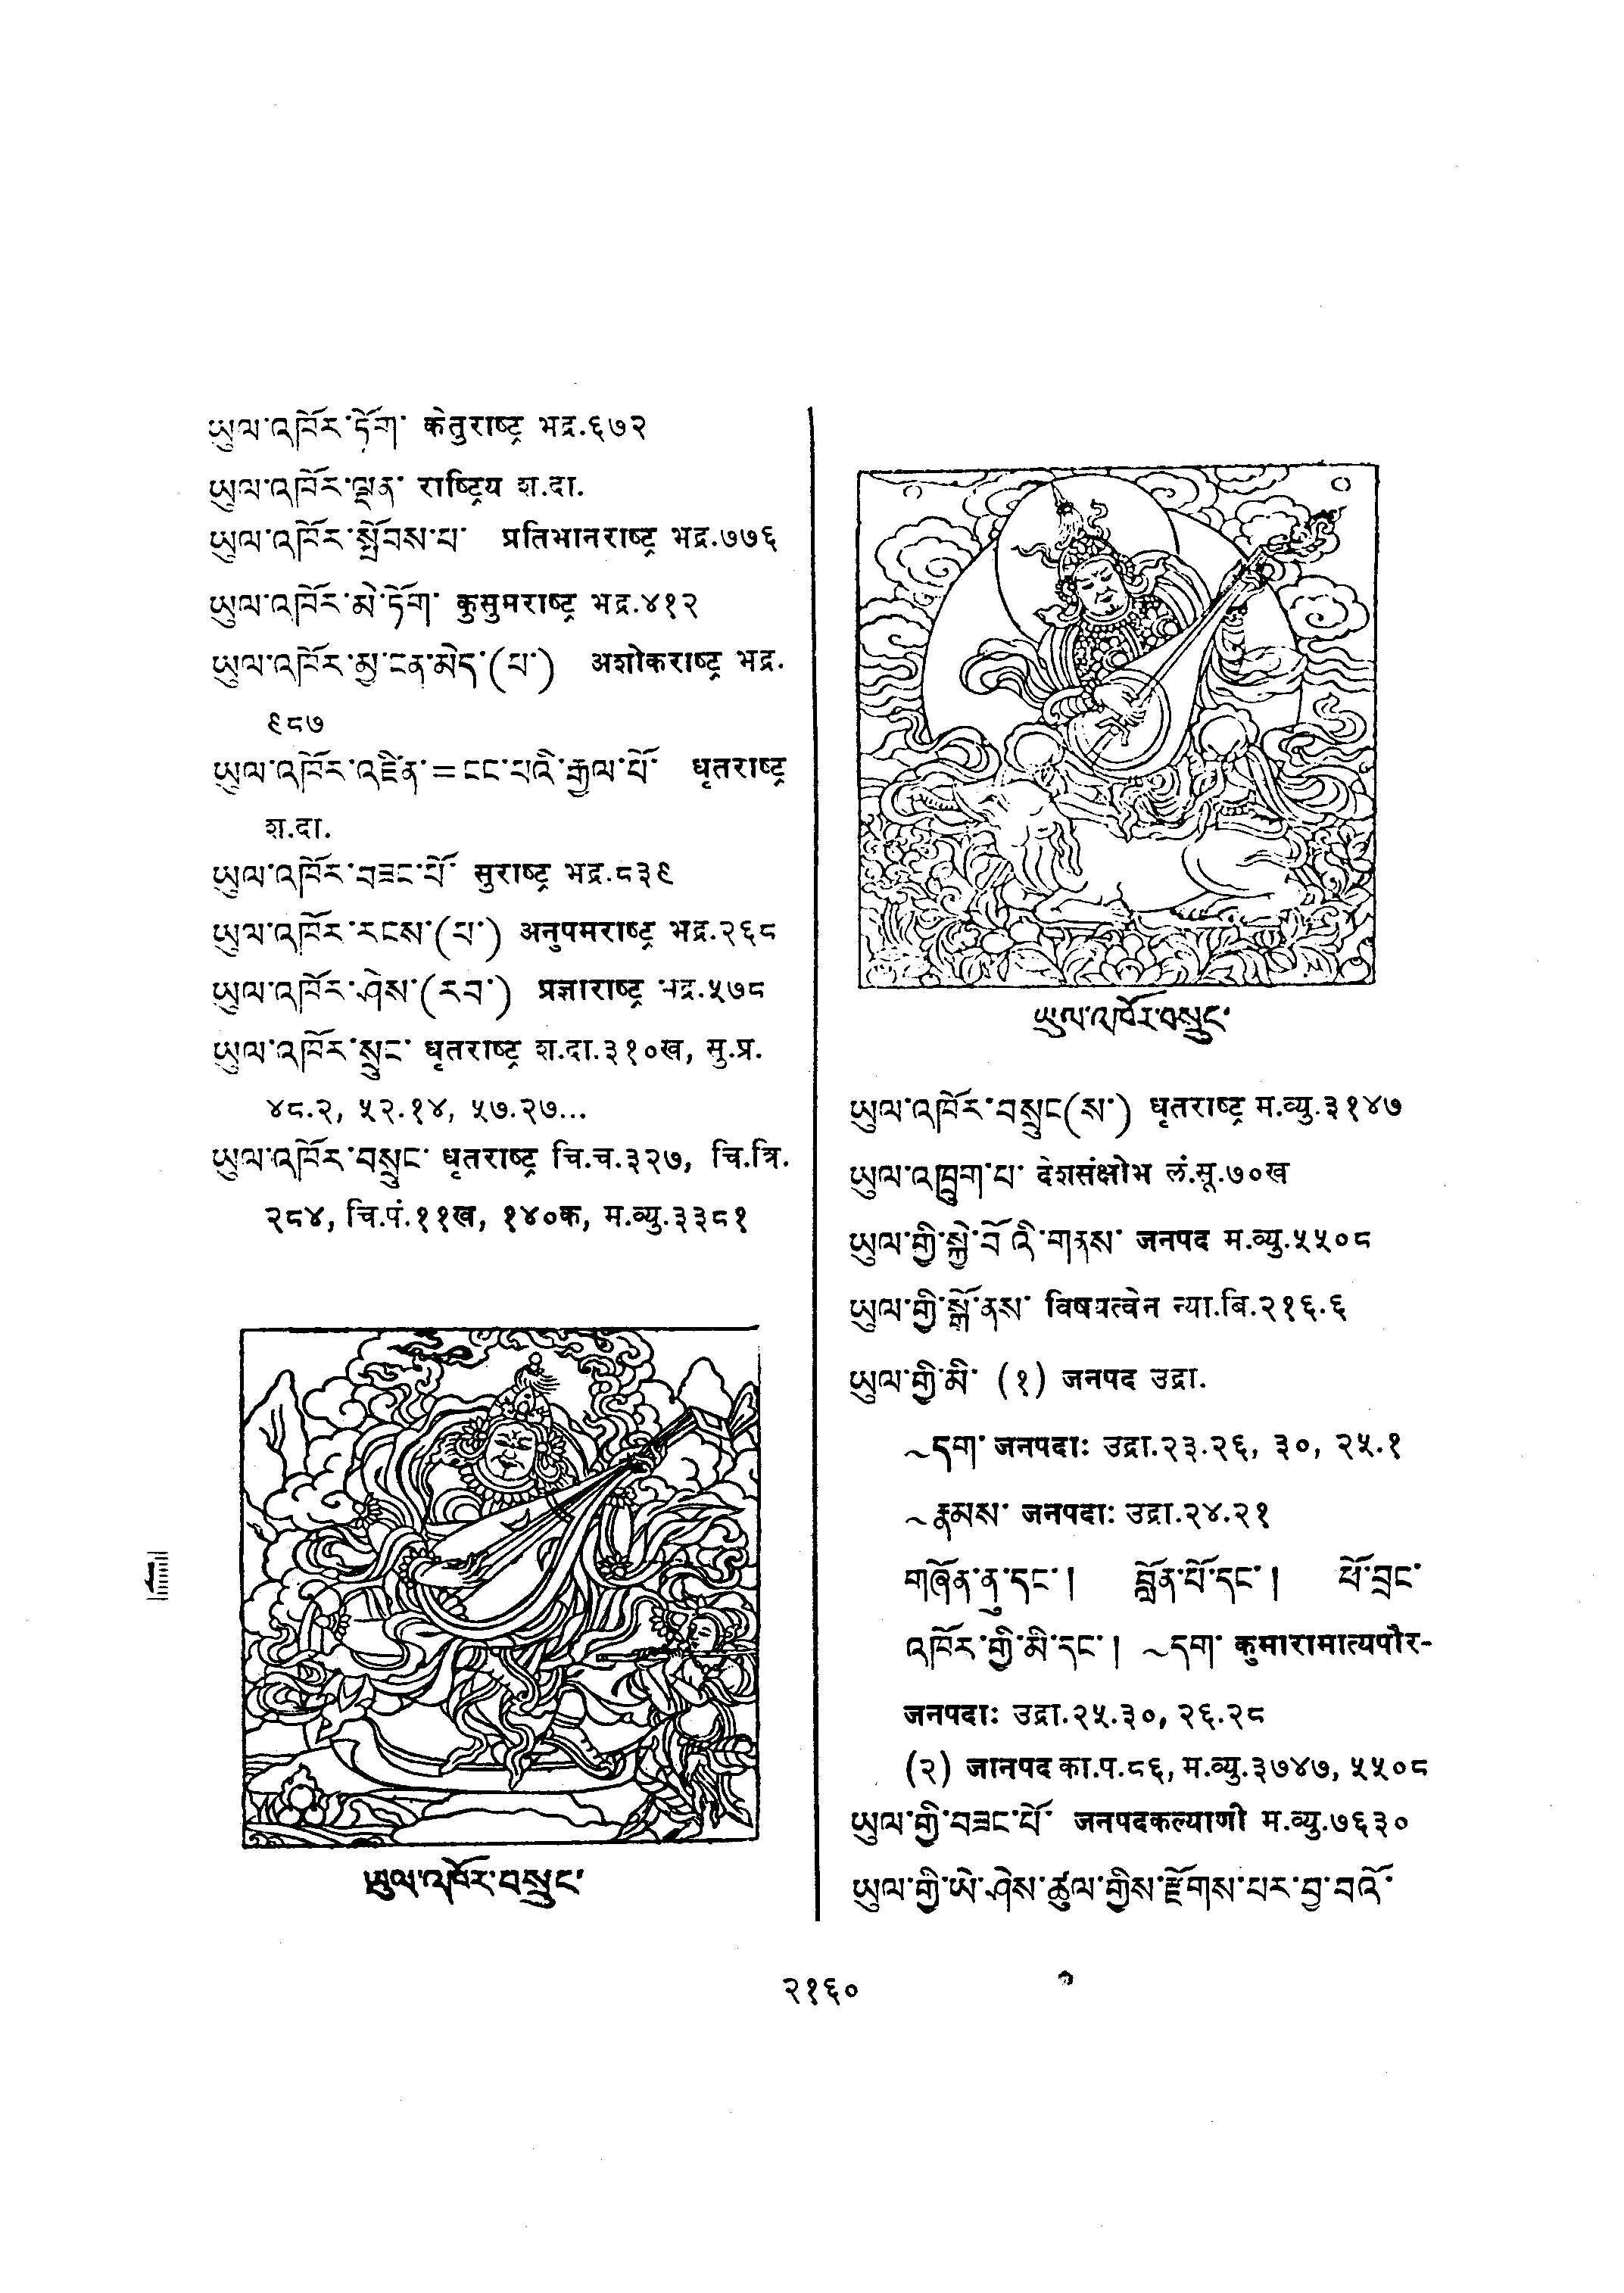 ཡུལ་འཁོར་ཏོག་ केतुराष्ट्र भद्र.६७२
ཡུལ་འཁོར་ལྡན་ राष्ट्रिय श.दा.
ཡུལ་འཁོར་སྤོབས་པ་ प्रतिभानराष्ट्र भद्र.७७६
ཡུལ་འཁོར་མེ་ཏོག་ कुसुमराष्ट्र भद्र.४१२
ཡུལ་འཁོར་མྱ་ངན་མེད་(པ་) अशोकराष्ट्र भद्र.
९८७
ཡུལ་འཁོར་འཛིན་=ངང་པའི་རྒྱལ་པོ་ धृतराष्ट्र
श.दा.
ཡུལ་འཁོར་བཟང་པོ་ सुराष्ट्र भद्र.८३९
ཡུལ་འཁོར་རངས་(པ་) अनुपमराष्ट्र भद्र.२६८
ཡུལ་འཁོར་ཤེས་(རབ་) प्रज्ञाराष्ट्र भद्र.५७८
ཡུལ་འཁོར་སྲུང་ धृतराष्ट्र श.दा.३१०ख, सु.प्र.
४८.२, ५२.१४, ५७.२७...
ཡུལ་འཁོར་བསྲུང་ धृतराष्ट्र चि.च.३२७, चि.त्रि.
२८४, चि.पं.११ख, १४०क, म.व्यु.३३८१
ཡུལ་འཁོར་བསྲུང་
ཡུལ་འཁོར་བསྲུང་
ཡུལ་འཁོར་བསྲུང(ས་) धृतराष्ट्र म.व्यु.३१४७
ཡུལ་འཁྲུག་པ་ देशसंक्षोभ लं.सू.७०ख
ཡུལ་གྱི་སྐྱེ་བོ་འི་གནས་ जनपद म.व्यु.५५०८
ཡུལ་གྱི་སྒོ་ནས་ विषयत्वेन न्या.बि.२१६.६
ཡུལ་གྱི་མི་ (१) जनपद उद्रा.
~དག་ जनपदाः उद्रा.२३.२६, ३०, २५.१
~རྣམས་ जनपदाः उद्रा.२४.२१
གཞོན་ནུ་དང་། བློན་པོ་དང་། ཕོ་བྲང་
འཁོར་གྱི་མི་དང་། ~དག་ कुमारामात्यपौर-
जनपदाः उद्रा.२५.३०, २६.२८
(२) जानपद का.प.८६, म.व्यु.३७४७, ५५०८
ཡུལ་གྱི་བཟང་པོ་ जनपदकल्याणी म.व्यु.७६३०
ཡུལ་གྱི་ཡེ་ཤེས་ཚུལ་གྱིས་རྫོགས་པར་བྱ་བའོ་
२१६०